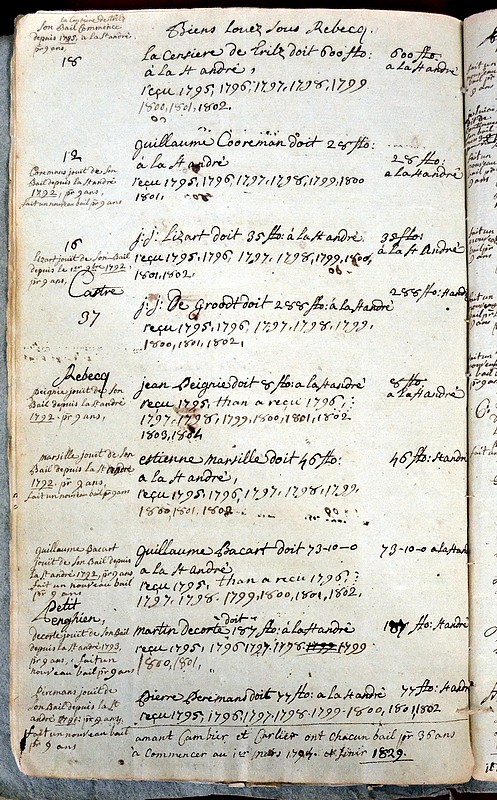 Biens louez sous Rebecq.
la Censiere de Trilz
Son Bail Commence
depuis 1795, a la St andré
pr 9 ans,
18
la Censiere de Trilz doit 600 flo:
à la St andré,
reçu 1795, 1796, 1797, 1798, 1799
1800, 1801, 1802.
600 flo.
a la St andré
12
Coremans jouit de Son
Bail depuis la St andré
1792, pr 9 ans,
fait un nouveau bail pr 9 ans
guillaume Cooreman doit 28 flo:
à la St andré
reçu 1795, 1796, 1797, 1798, 1799, 1800
1801.
28 flo:
a la St andré
16
Lizart jouit de Son Bail
depuis le 1er
pr 9 ans,
j: j: Lizart doit 35 flo: à la St andré
reçu 1795, 1796, 1797, 1798, 1799, 1800,
1801, 1802.
35 flo:
a la St André
Castre
37
j: j: De Groodt doit 288 flo: à la St andré
reçu 1795, 1796, 1797, 1798, 1799,
1800, 1801, 1802,
288 flo: St andr
Rebecq
Peignie jouit de Son
Bail depuis la St andré
1792. pr 9 ans,
jean Peignie doit 8 flo: a la St andré
reçu 1795, than a reçu 1796,
1797, 1798, 1799, 1800, 1801, 1802
1803, 1804
8 flo:
a la St andré
marsille jouit de Son
Bail depuis la St andré
1792. pr 9 ans,
fait un nouveau bail pr 9 ans
estienne marsille doit 46 flo:
a la St andré,
reçu 1795, 1796, 1797, 1798, 1799,
1800, 1801, 1802
46 flo: St andré
Guillaume Bacart
jouit de Son Bail depuis
la St andré 1792, pr 9 ans
fait un nouveau bail
pr 9 ans
guillaume Bacart doit 73-10-0
a la St André
reçu 1795, than a reçu 1796,
1797, 1798. 1799, 1800, 1801, 1802,
73-10-0 a la St an
Petit
Enghien,
decorte jouit de Son Bail
depuis la St andré 1793,
pr 9 ans, fait un
nouveau bail pr 9 ans
martin Decorte doit 187 flo: à la St andré
reçu 1795, 1796 1797. 1798 1799 1799
1800, 1801,
187 flo: St andré
Peremans jouit de
Son Bail depuis la St
andré pr 9 ans,
fait un nouveau bail
pr 9 ans
Pierre Peremans doit 77 flo: a la St andré
reçu 1795, 1796, 1797, 1798, 1799, 1800, 1801, 1802
77 flo: St andr
amant Cambier et Carlier ont chacun bail pr 36 ans
a Commencer au 1er mars 1794. et finir 1829.